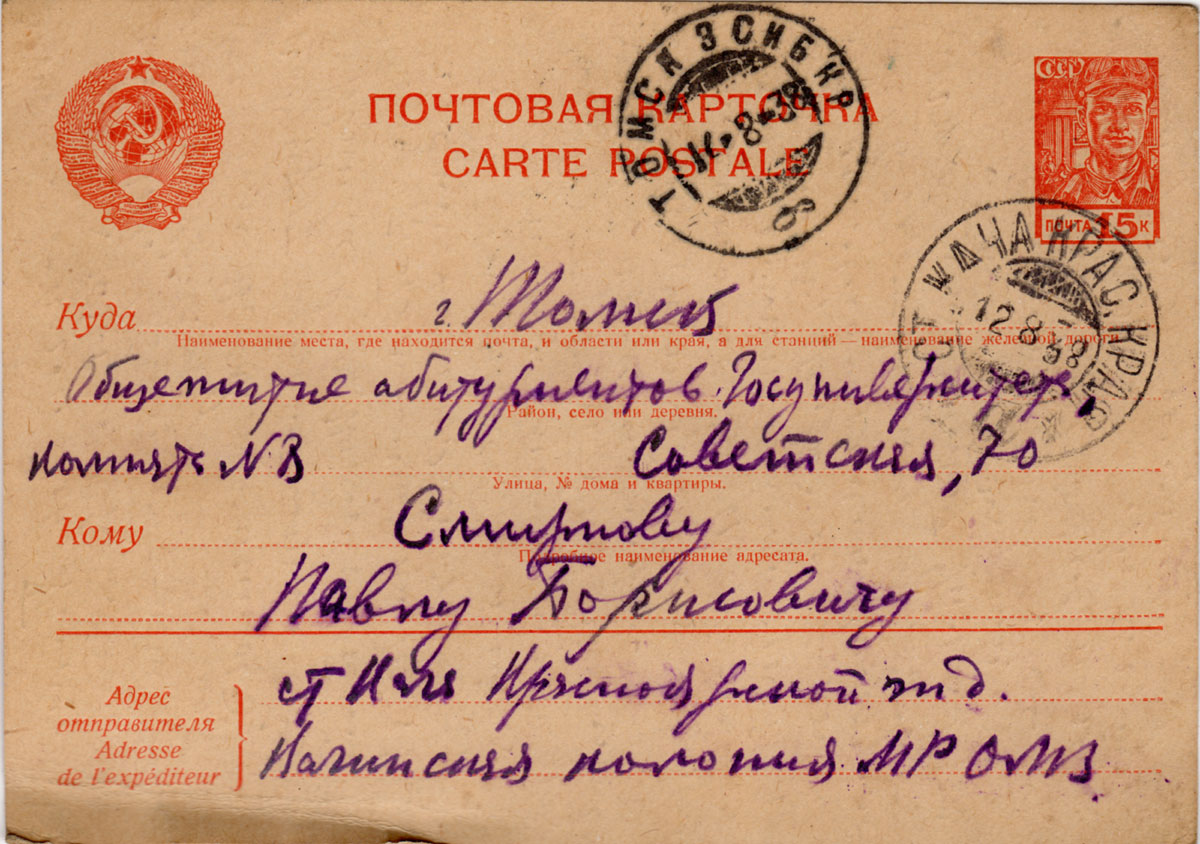 ПОЧТОВАЯ КАРТОЧКА
CARTE POSTALE
СССР
ПОЧТА 15 К
ТОМСК З СИБКР
8-38
СТ КАЧА КРАС. КРАЯ
12 8 38
Куда г. Томск
Наименование места, где находится почта, и области или края, а для станций — наименование железной дороги.
Общежитие абитуриентов Госуниверситета,
Район, село или деревня.
комната N 3 Советская, 70
Улица, № дома и квартиры.
Кому Смирнову
Подробное наименование адресата.
Павлу Борисовичу
Адрес отправителя
Adresse de l'expéditeur
ст Красноярской жд.
колония МР ОМЗ